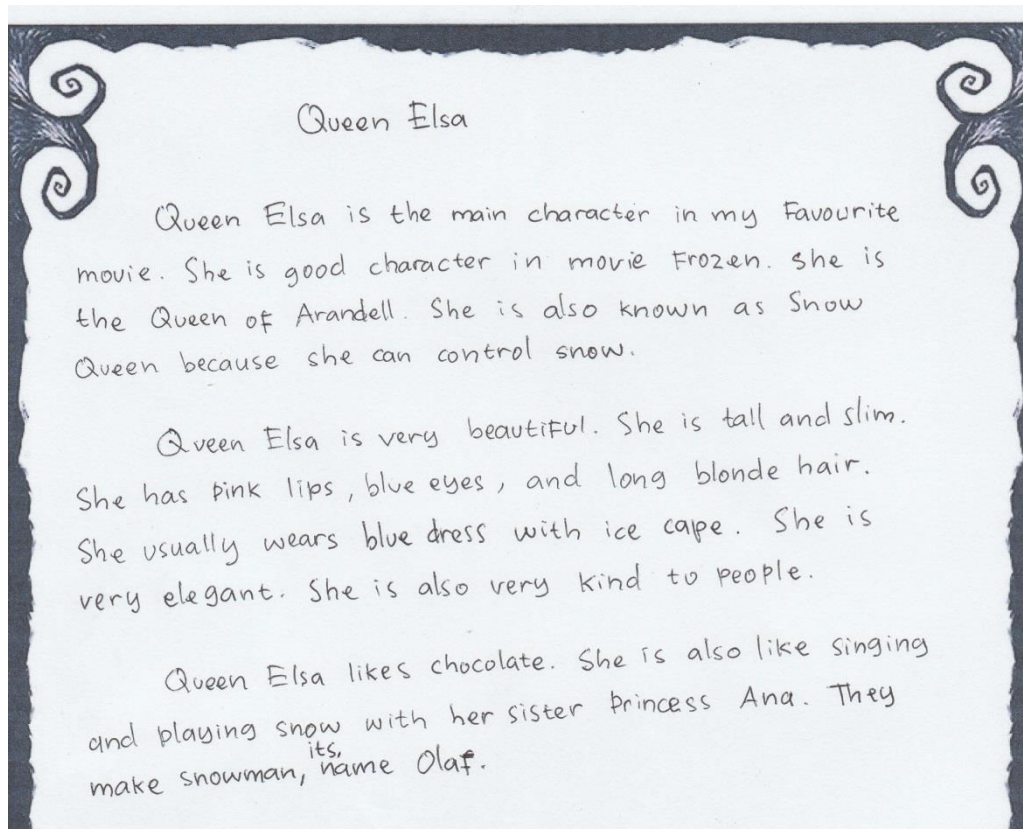 Queen Elsa
Queen Elsa is the main character in my Favourite
movie. She is good character in movie Frozen. She is
the Queen of Arandell. She is also known as Snow
Queen because she can control snow.
Queen Elsa is very beautiful. She is tall and slim.
She has pink lips, blue eyes, and long blonde hair.
She usually wears blue dress with ice cape. She is
very elegant. She is also very kind to people.
Queen Elsa likes chocolate. She is also like singing
and playing snow with her sister Princess Ana. They
make snowman, its, name Olaf.